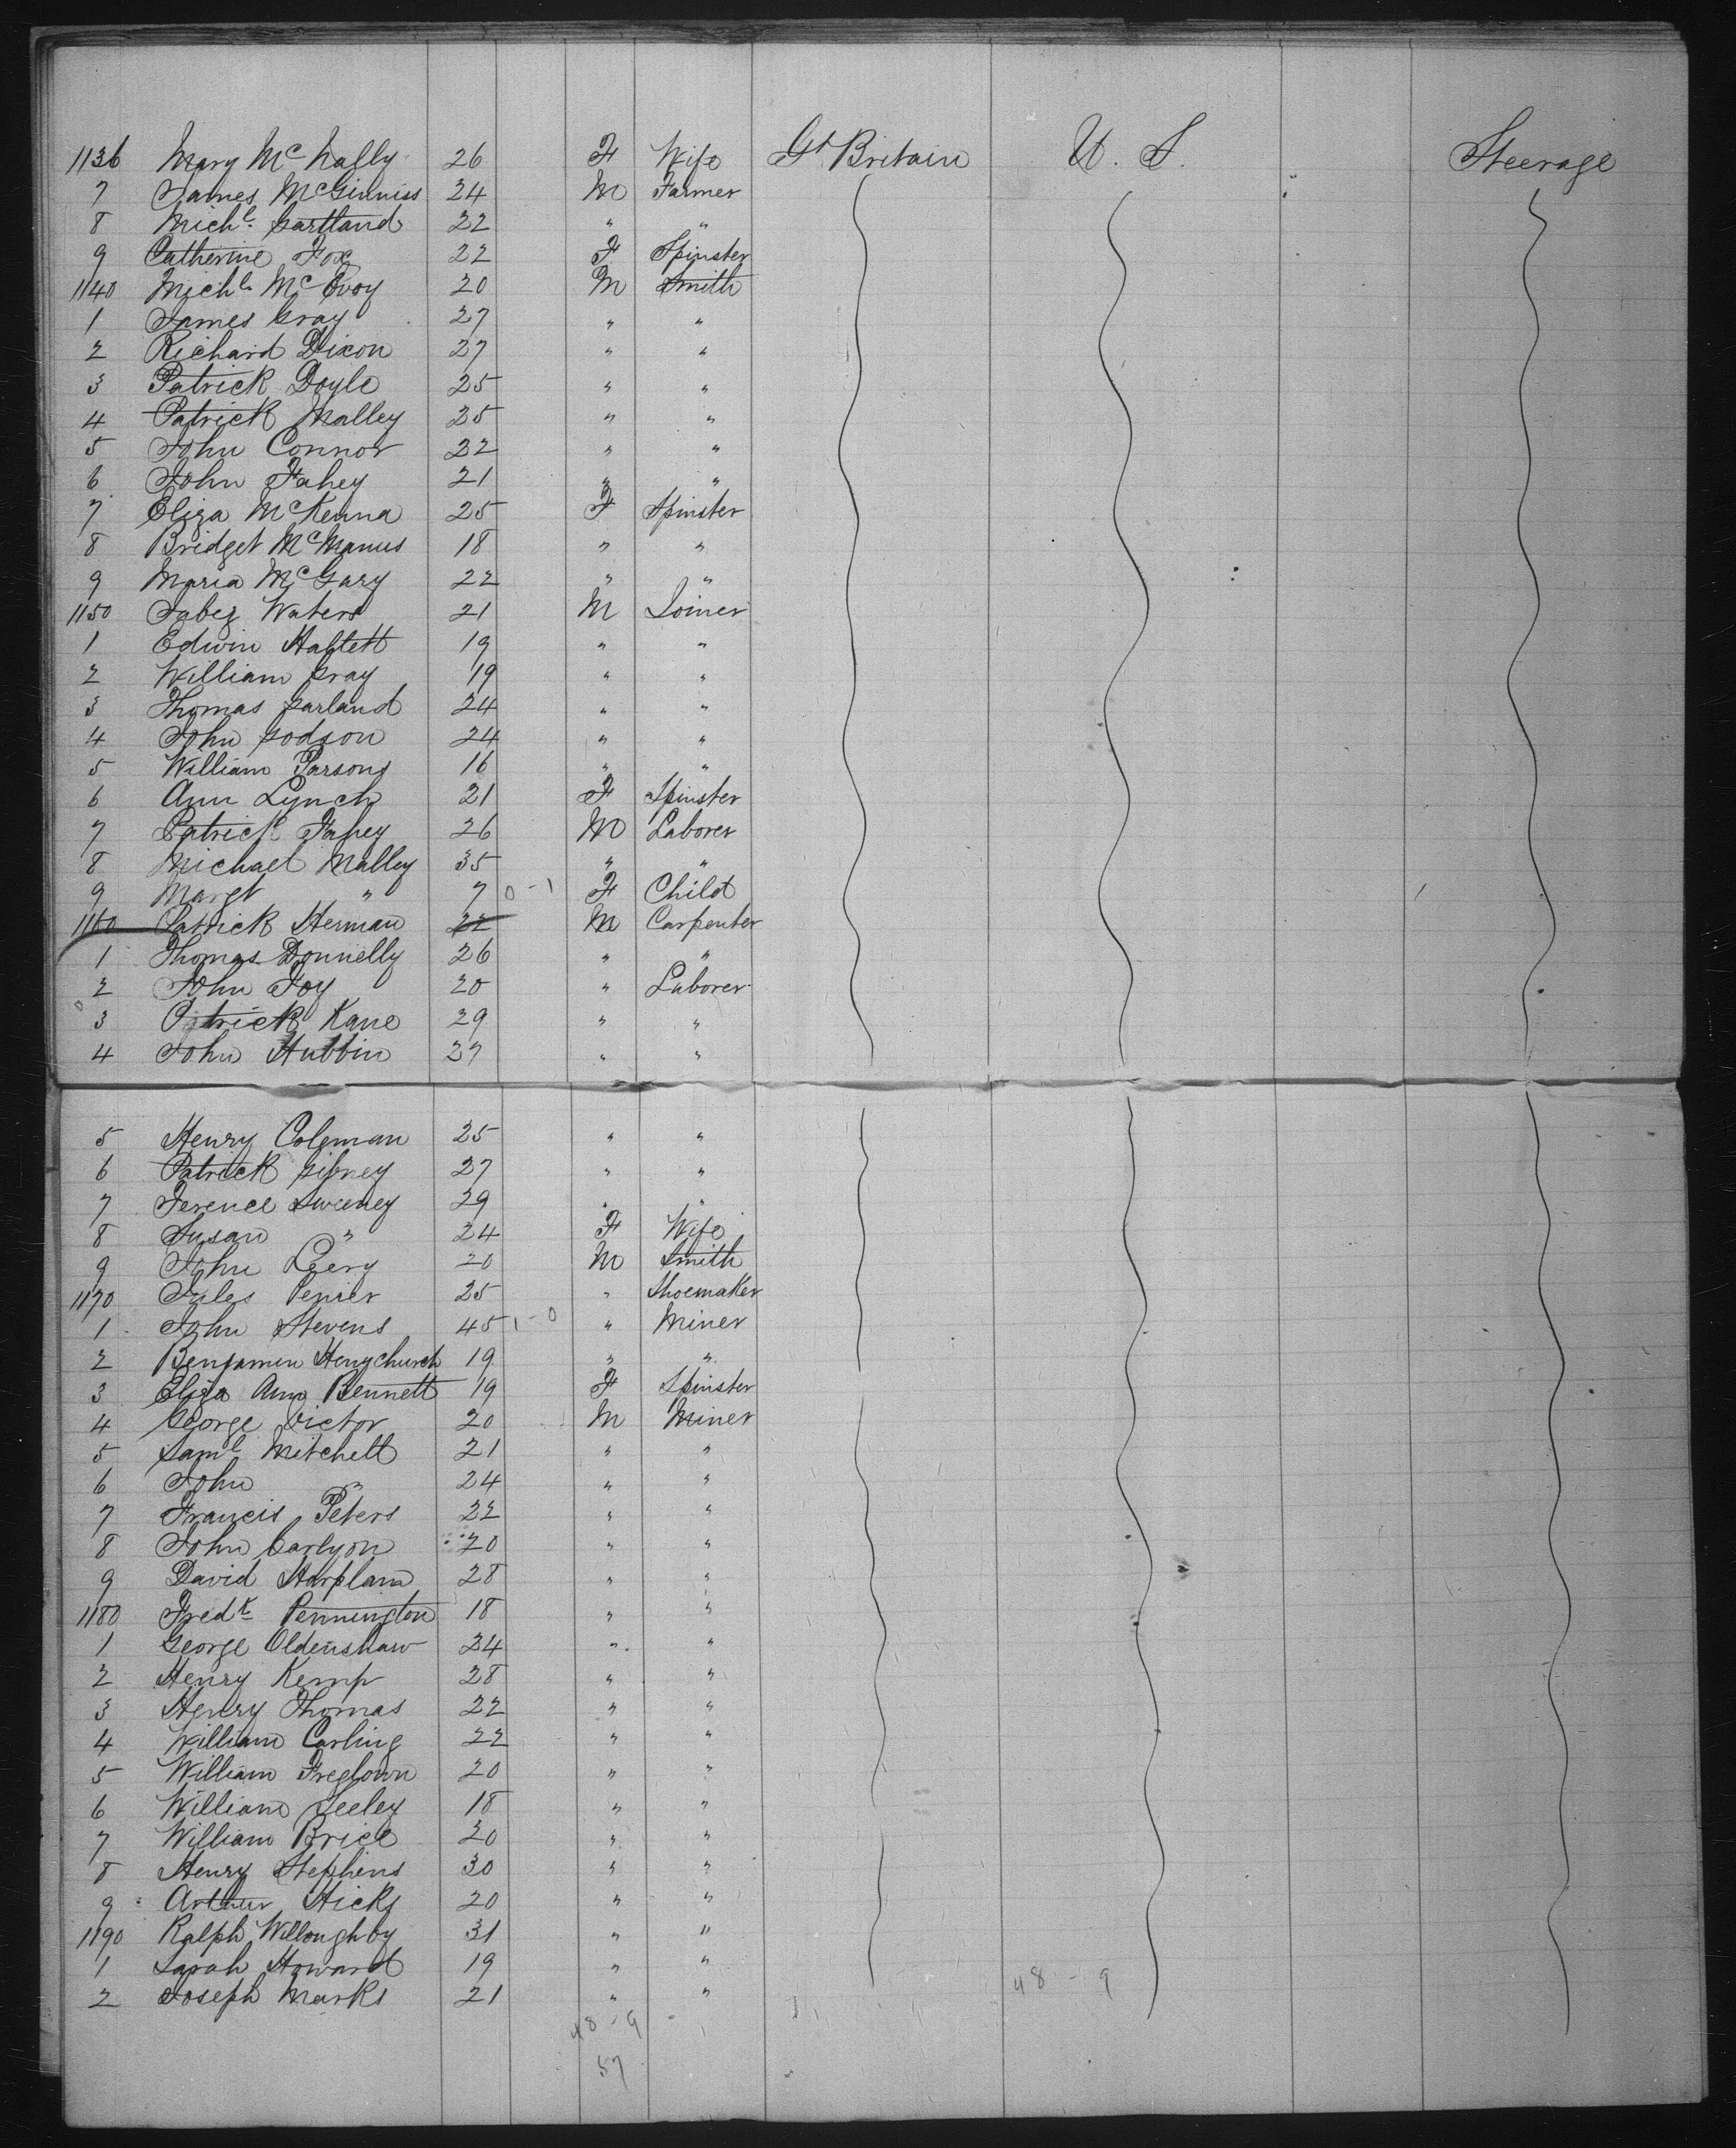 1136 Mary McNally 26 F Wife Gt Britain U. S. Steerage
7 James McGinniss 24 M Farmer
8 Michl Gartland 22 " "
9 Catherine Fox 22 F Spinster
1140 Michl McEvoy 20 M Smith
1 James Gray 27 " "
2 Richard Dixon 27 " "
3 Patrick Doyle 25 " "
4 Patrick Malley 25 " "
5 John Connor 22 " "
6 John Fahey 21 " "
7 Eliza McKenna 25 F Spinster
8 Bridget McManus 18 " "
9 Maria McGary 22 " "
1150 Jabez Waters 21 M Joiner
1 Edwin 19 " "
2 William Gray 19 " "
3 Thomas Garland 24 " "
4 John Godson 24 " "
5 William Parsons 16 " "
6 Ann Lynch 21 F Spinster
7 Patrick Fahey 26 M Laborer
8 Michael Malley 35 " "
9 Margt " 7 0-1 F Child
1160 Patrick Herman 22 M Carpenter
1 Thomas Donnelly 26 " "
2 John Foy 20 " Laborer
3 Patrick Kane 29 " "
4 John Hubbin 27 " "
5 Henry Coleman 25 " "
6 Patrick Gibney 27 " "
7 Terence Sweeney 29 " "
8 Susan " 24 F Wife
9 John Leery 20 M Smith
1170 Jules Penier 25 " Shoemaker
1 John Stevens 45 1-0 " Miner
2 Benjamin Henychurch 19 " "
3 Eliza Ann Bennett 19 F Spinster
4 George Victor 20 M Miner
5 Saml Mitchell 21 " "
6 John " 24 " "
7 Francis Peters 22 " "
8 John Carlyon 20 " "
9 David Harplam 28 " "
1180 Fredk Pennington 18 " "
1 George Oldenshaw 24 " "
2 Henry Kemp 28 " "
3 Henry Thomas 22 " "
4 William Carling 22 " "
5 William Freglown 20 " "
6 William Seeley 18 " "
7 William Brice 20 " "
8 Henry Stephens 30 " "
9 Arthur Hicks 20 " "
1190 Ralph Willoughby 31 " "
1 Sarah Howard 19 " "
2 Joseph Marks 21 " "
48 - 9
48 - 9
57